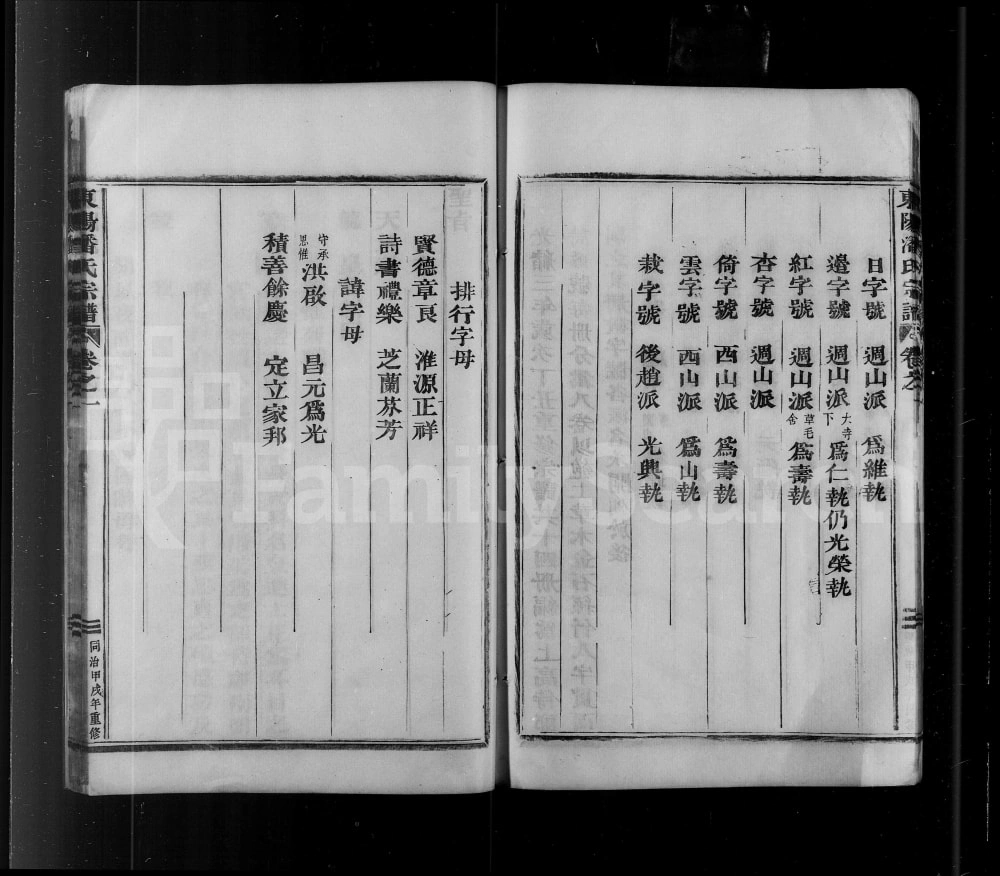 東陽潘氏宗譜 卷之一
日字號 週山派 爲維執
邊字號 週山派 大寺下 爲仁執仍光榮執
紅字號 週山派 草毛舍 爲壽執
杏字號 週山派
倚字號 西山派 爲壽執
雲字號 西山派 爲山執
栽字號 後趙派 光興執
排行字母
賢德章良 淮源正祥
詩書禮樂 芝蘭芬芳
諱字母
守承思惟洪啟 昌元爲光
積善餘慶 定立家邦
東陽潘氏宗譜 卷之一
同治甲戌年重修
FamilySearch